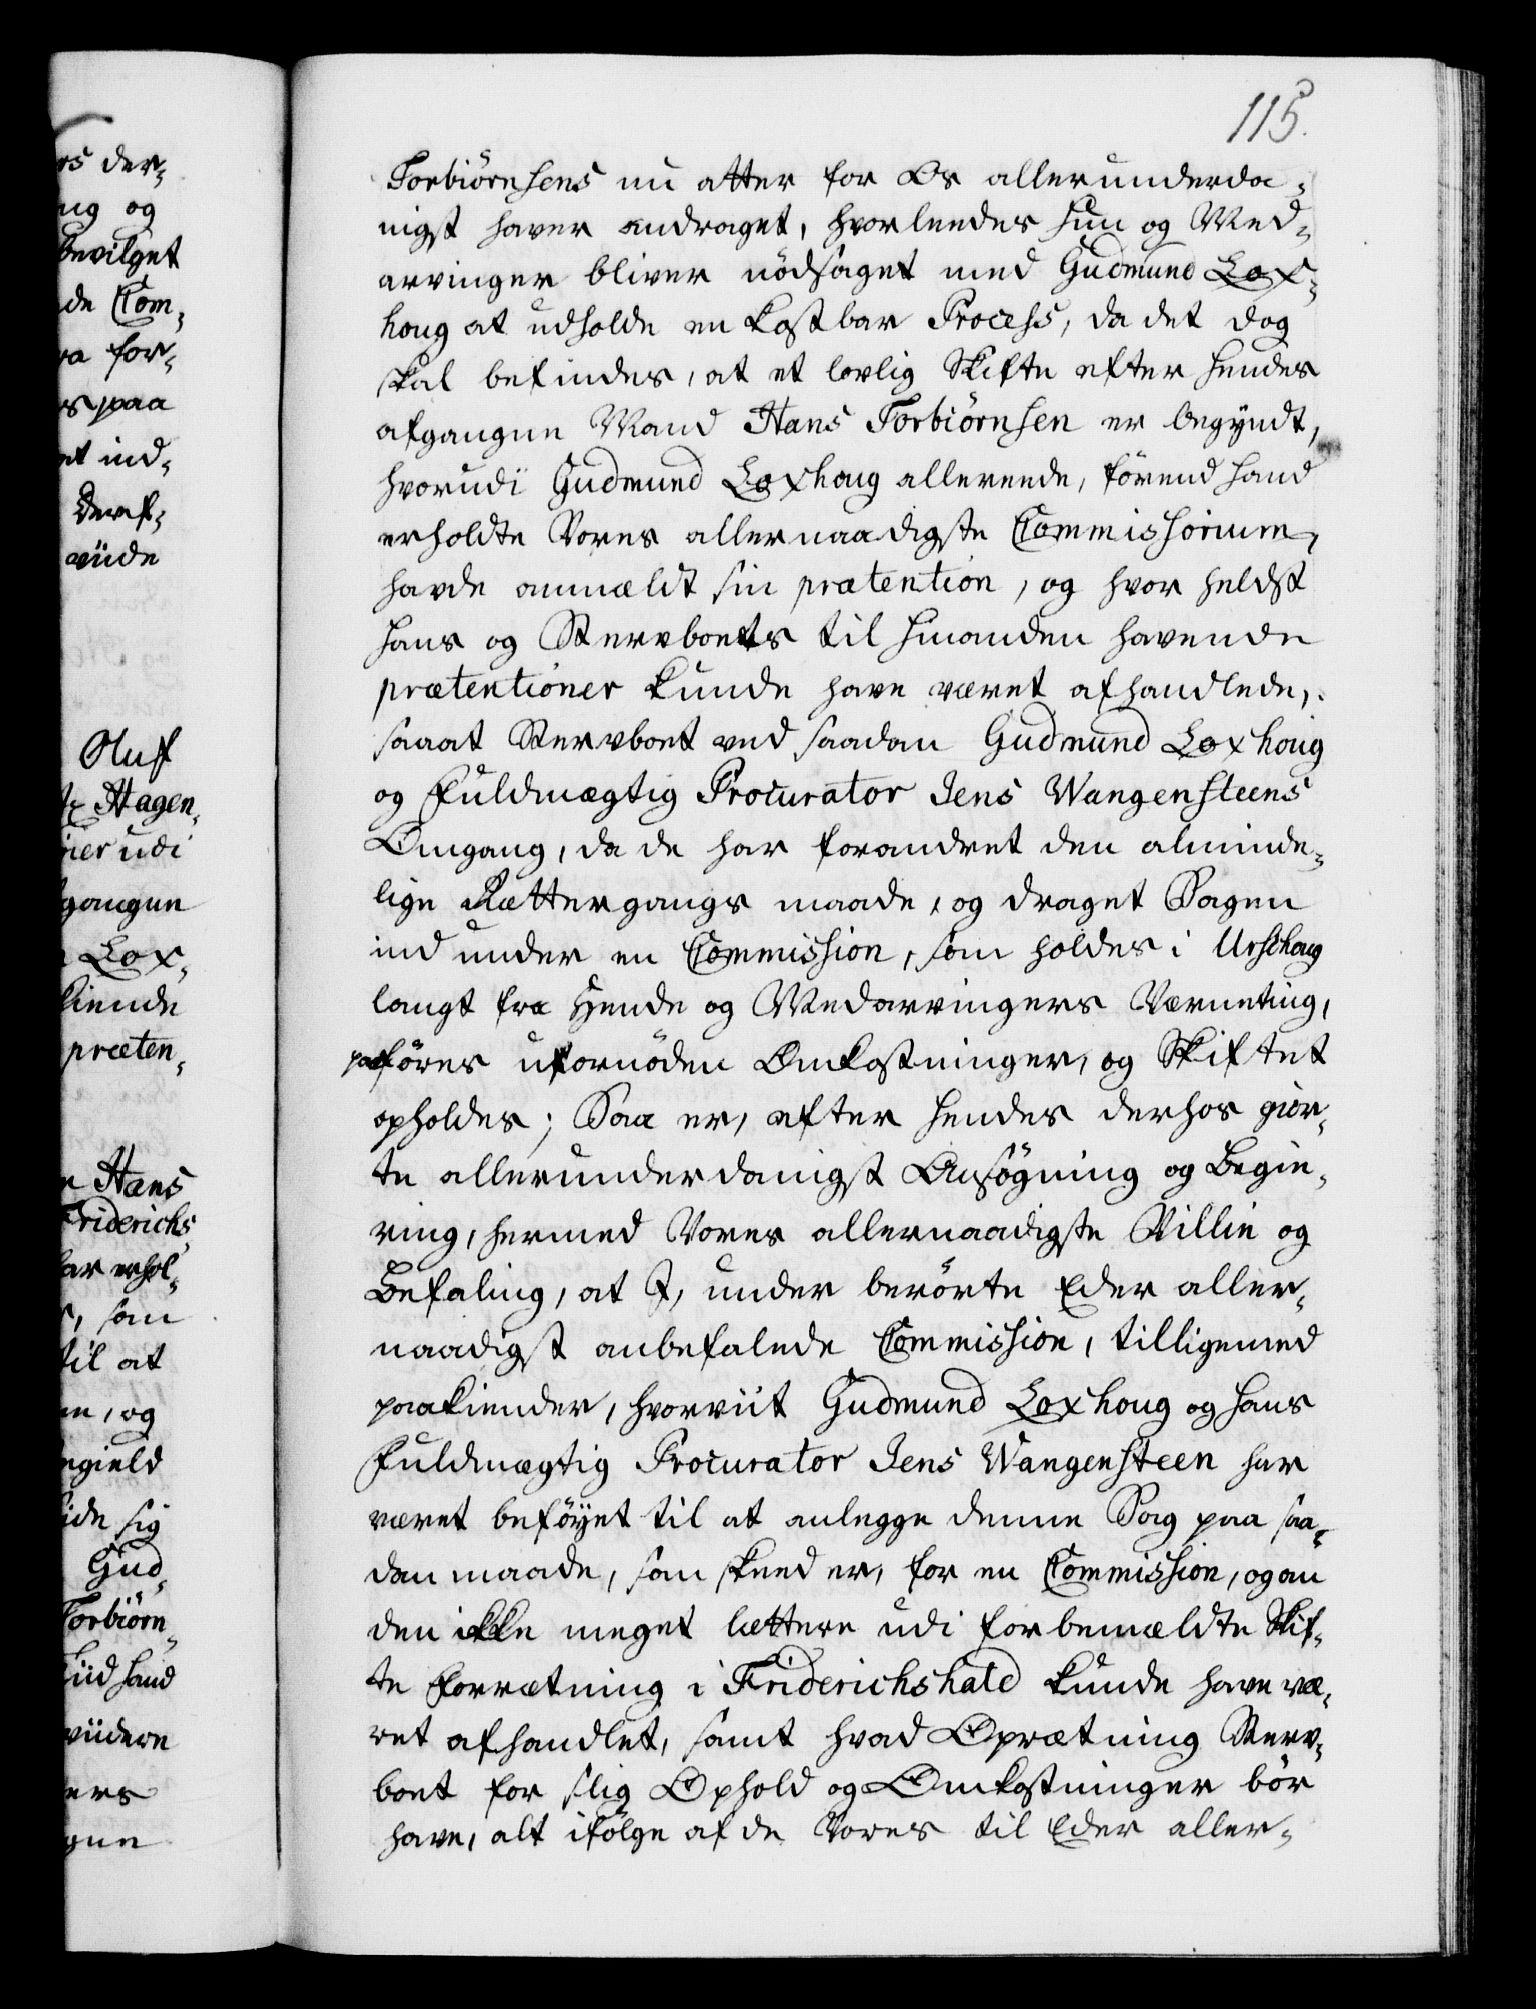 115.
Torbiörnsens nu atter for Os allerunderda-
nigst haver andraget, hvorleedes hun og Med-
arvinger bliver nödsaget med Gudmund Lox-
houg at udholde en kostbar Process, da det dog
skal befindes, at et lovlig Skifte efter hendes
afgangne Mand Hans Torbiörnsen er begyndt,
hvorudi Gudmund Loxhoug allereede, förend hand
erholdte Vores allernaadigste Commissorium,
havde anmældt sin prætention, og hvor heldst
hans og Stervboets til hinanden havende
prætentioner kunde have været afhandlede,
saaat Stervboet ved saadan Gudmund Loxhoug
og Fuldmægtig Procurator Jens Wangensteens
Omgang, da de har forandret den alminde-
lige Rættergangs maade, og draget Sagen
ind under en Commission, som holdes i Urschoug
langt fra Hende og Medarvingers Værneting,
paaföres ufornöden Omkostninger, og Skiftet
opholdes; Saa er, efter hendes derhos gior-
te allerunderdanigst Ansøgning og Begie-
ring, hermed Vores allernaadigste Villie og
Befaling, at I, under berörte Eder aller-
naadigst anbefalede Commission, tilligemed
paakiender, hvorviit Gudmund Loxhoug og hans
Fuldmægtig Procurator Jens Wangensteen har
været beföyet til at anlegge denne Sag paa saa-
dan maade, som skeed er, for en Commission, og om
den ikke meget lættere udi forbemældte Skif-
te Forrætning i Friderichshald kunde have væ-
ret afhandlet, samt hvad Oprætning Sterv-
boet for slig Ophold og Omkostninger bör
have, alt ifölge af de Vores til Eder aller-